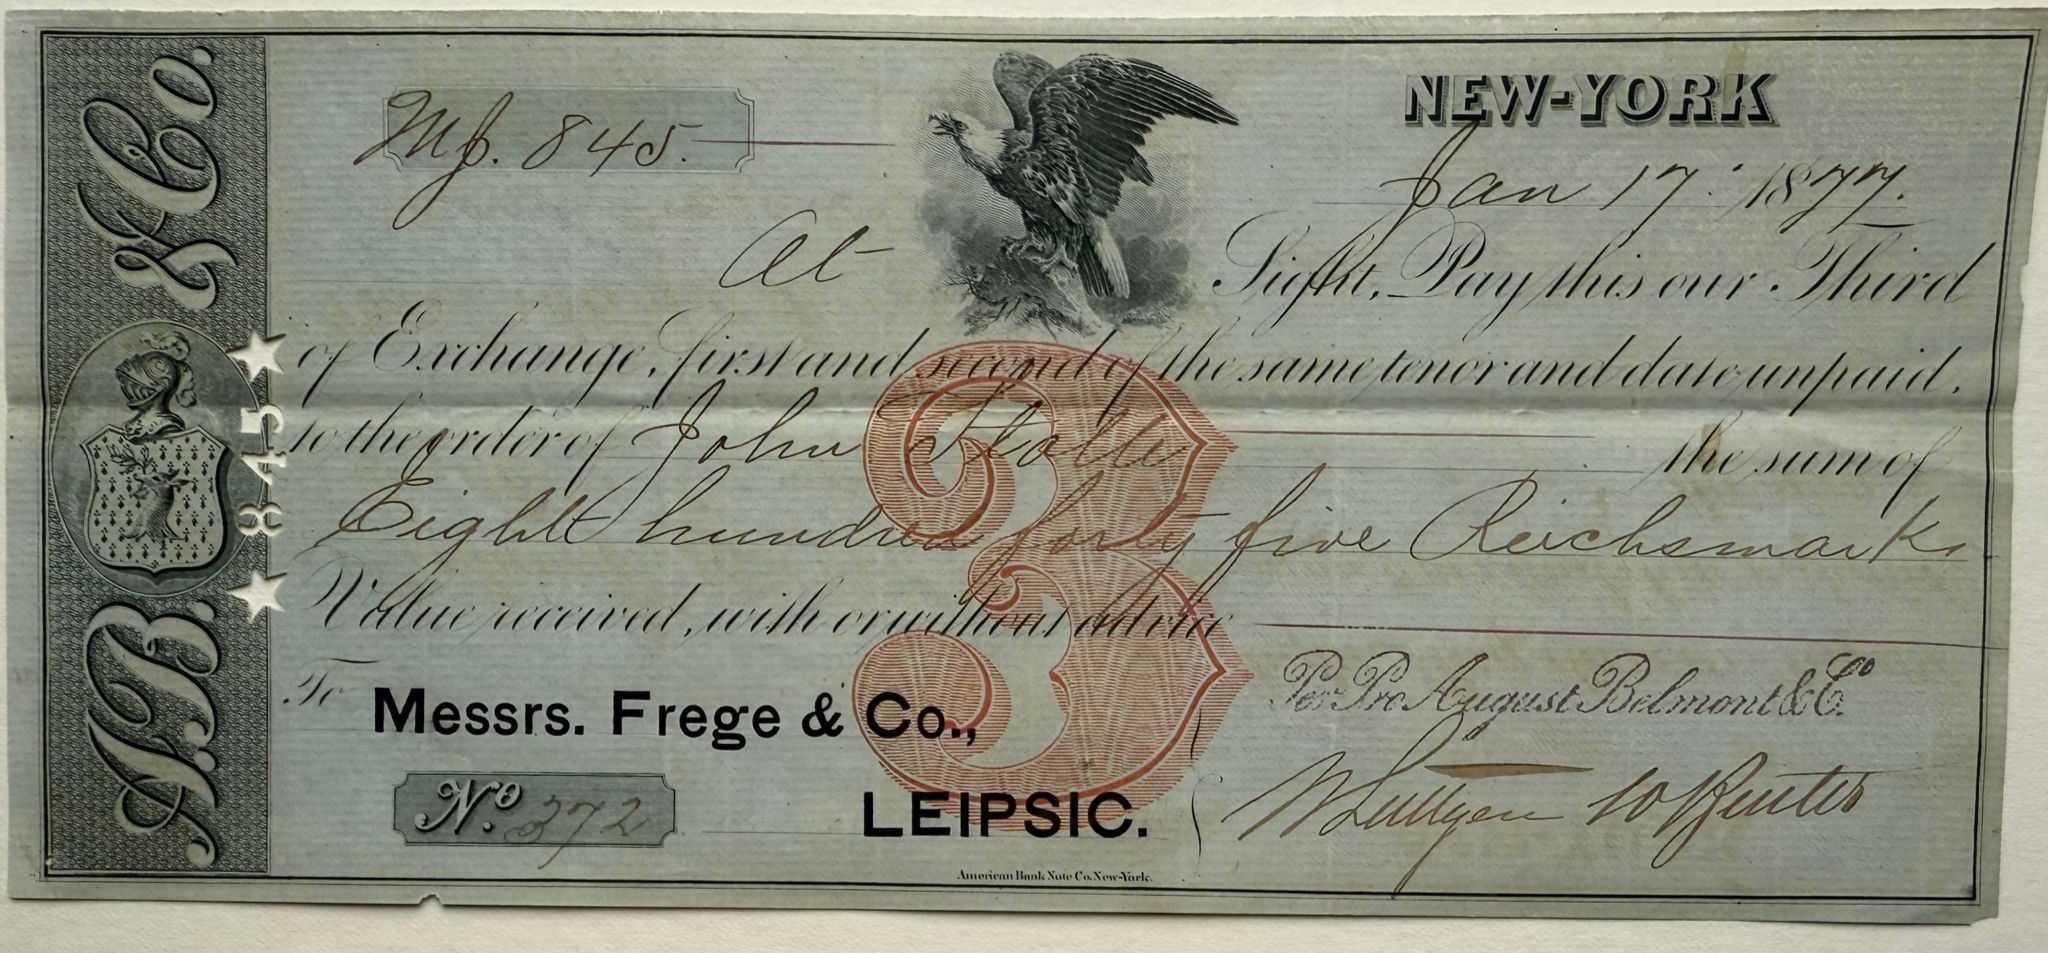 A.B. & Co.
★ 845 ★
Mf. 845.
NEW-YORK
Jan 17. 1877.
At Sight, Pay this our Third
of Exchange, first and second of the same tenor and date unpaid,
to the order of John Stolle the sum of
Eight hundred forty five Reichsmark
Value received, with or without advice
3
To
Messrs. Frege & Co.,
LEIPSIC.
Per Pro August Belmont & Co.
No. 372
American Bank Note Co. New-York.